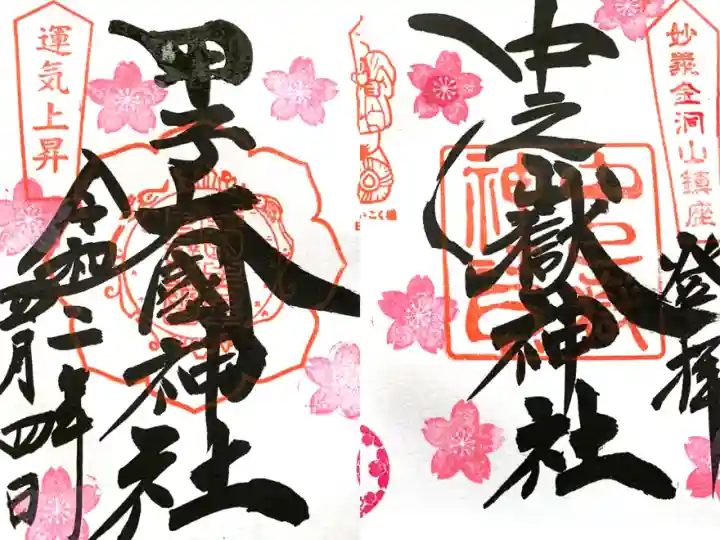 妙義金洞山鎮座
登拝
中之嶽神社
いこく様
運気上昇
甲子大國神社
令和二年
四月四日